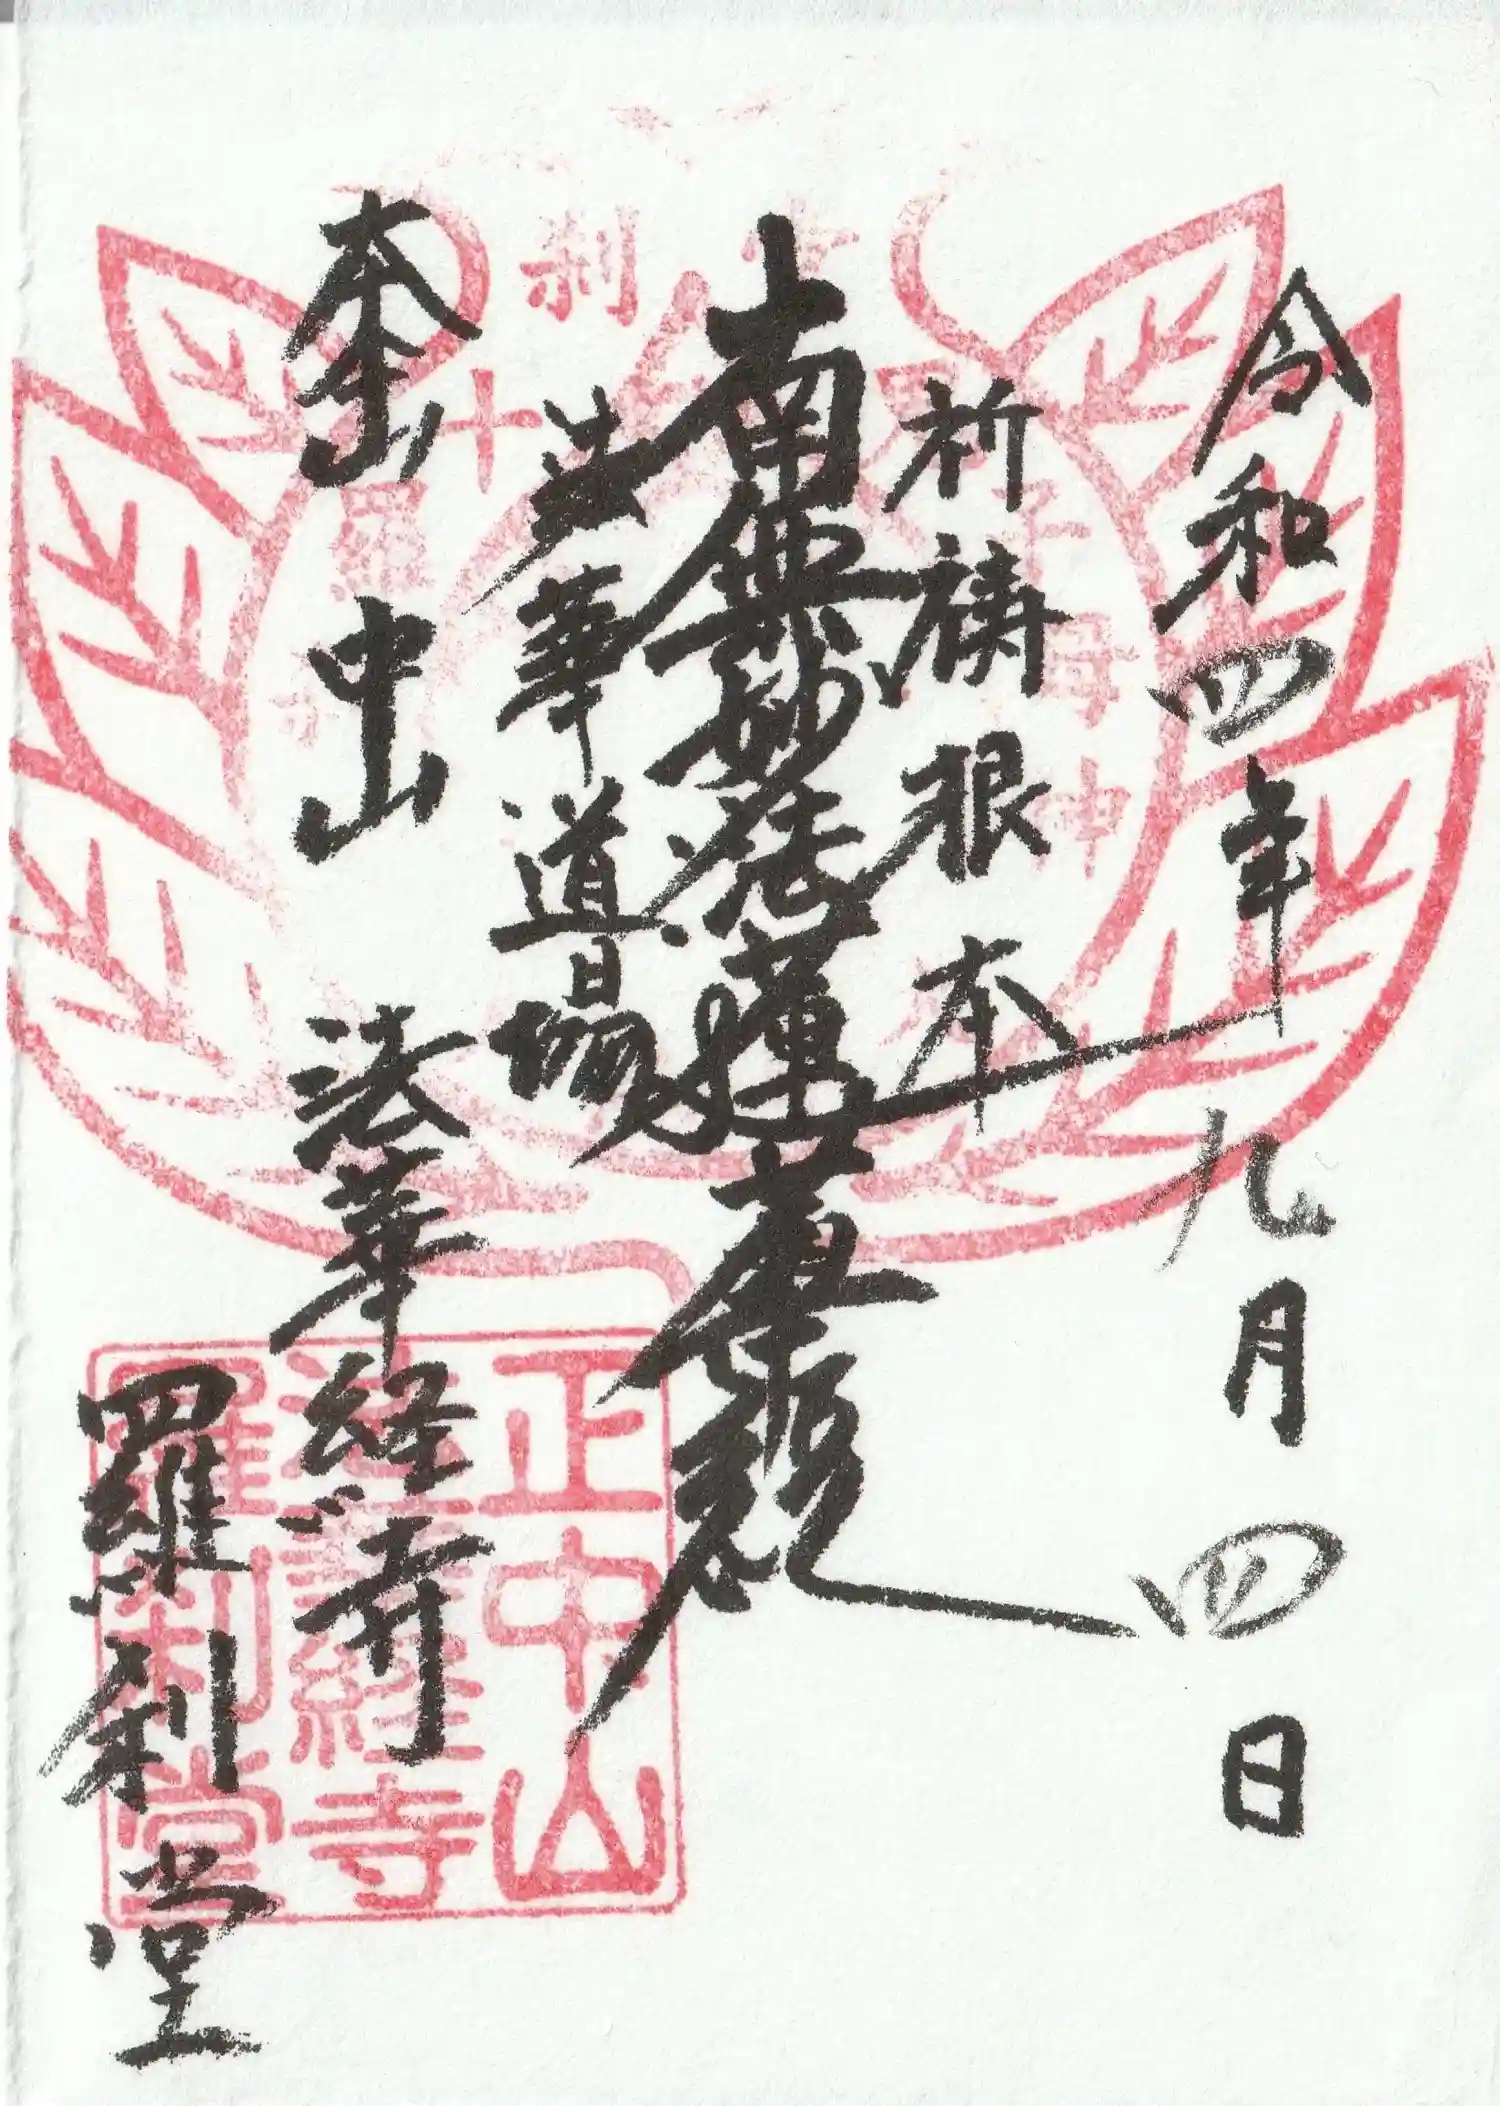 令和四年九月四日
祈祷根本
南無妙法蓮華経
法華道場
大本山 中山 法華経寺
羅刹堂
子母神
十羅刹
正中山
法華經寺
羅刹堂